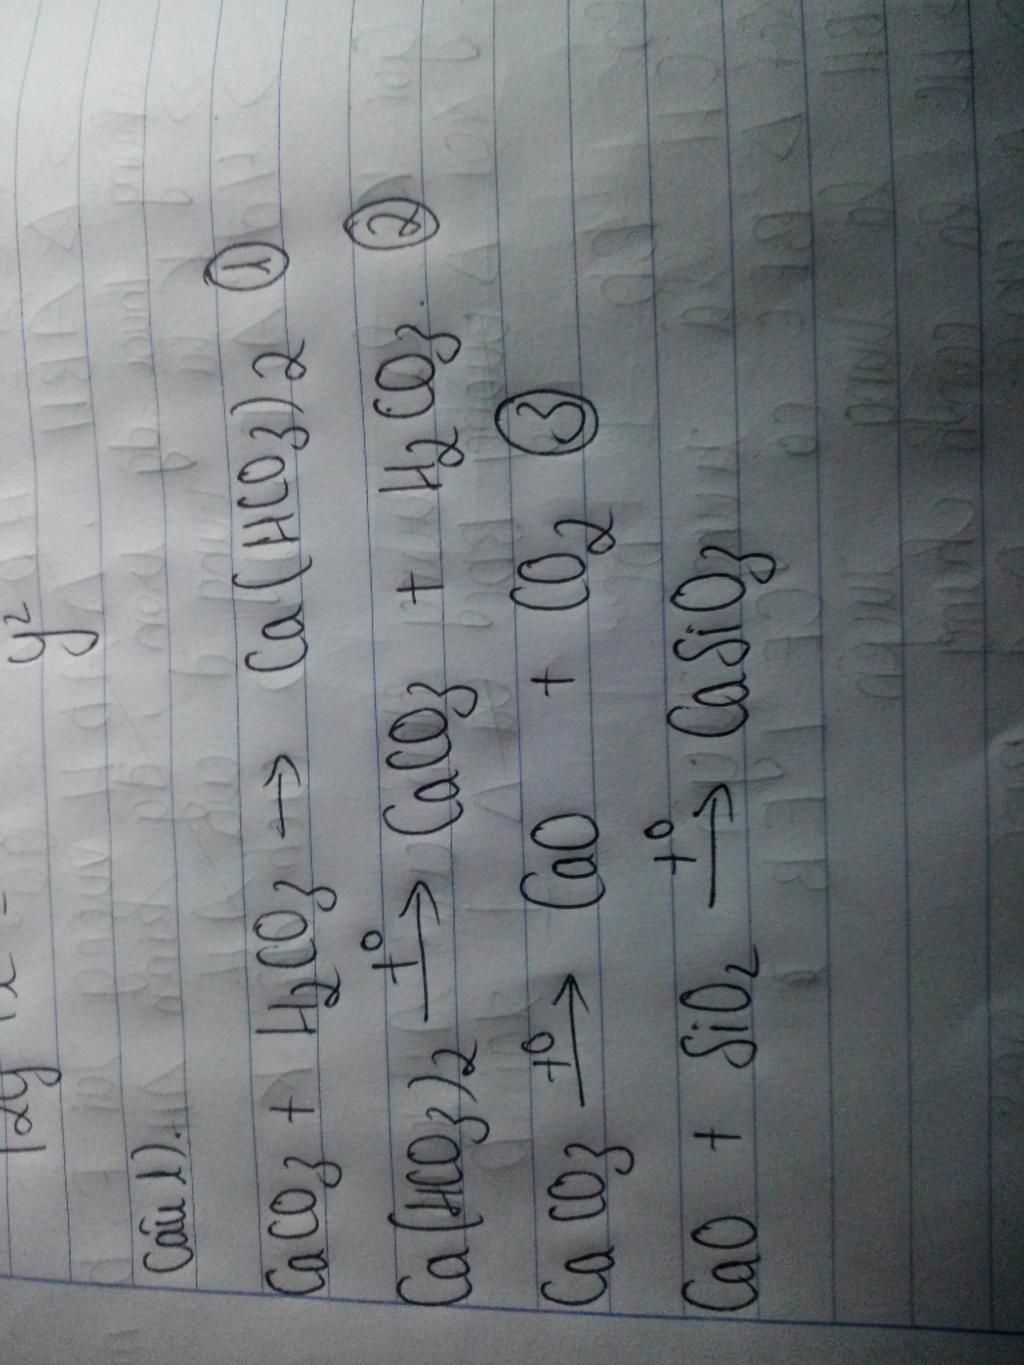 y²
Câu 1).
CaCO3 + H2CO3 → Ca(HCO3)2 ①
Ca(HCO3)2 —t°→ CaCO3 + H2CO3. ②
CaCO3 —t°→ CaO + CO2 ③
CaO + SiO2 —t°→ CaSiO3